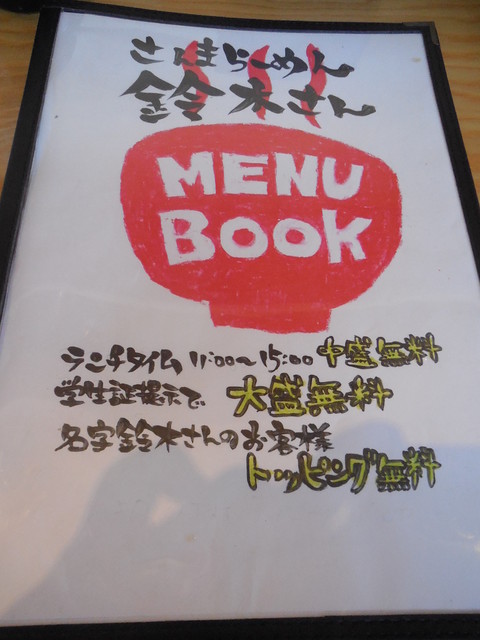 さはらーめん
鈴木さん
MENU
BOOK
ランチタイム 11:00〜15:00 中盛無料
学生証提示で 大盛無料
名字鈴木さんのお客様
トッピング無料